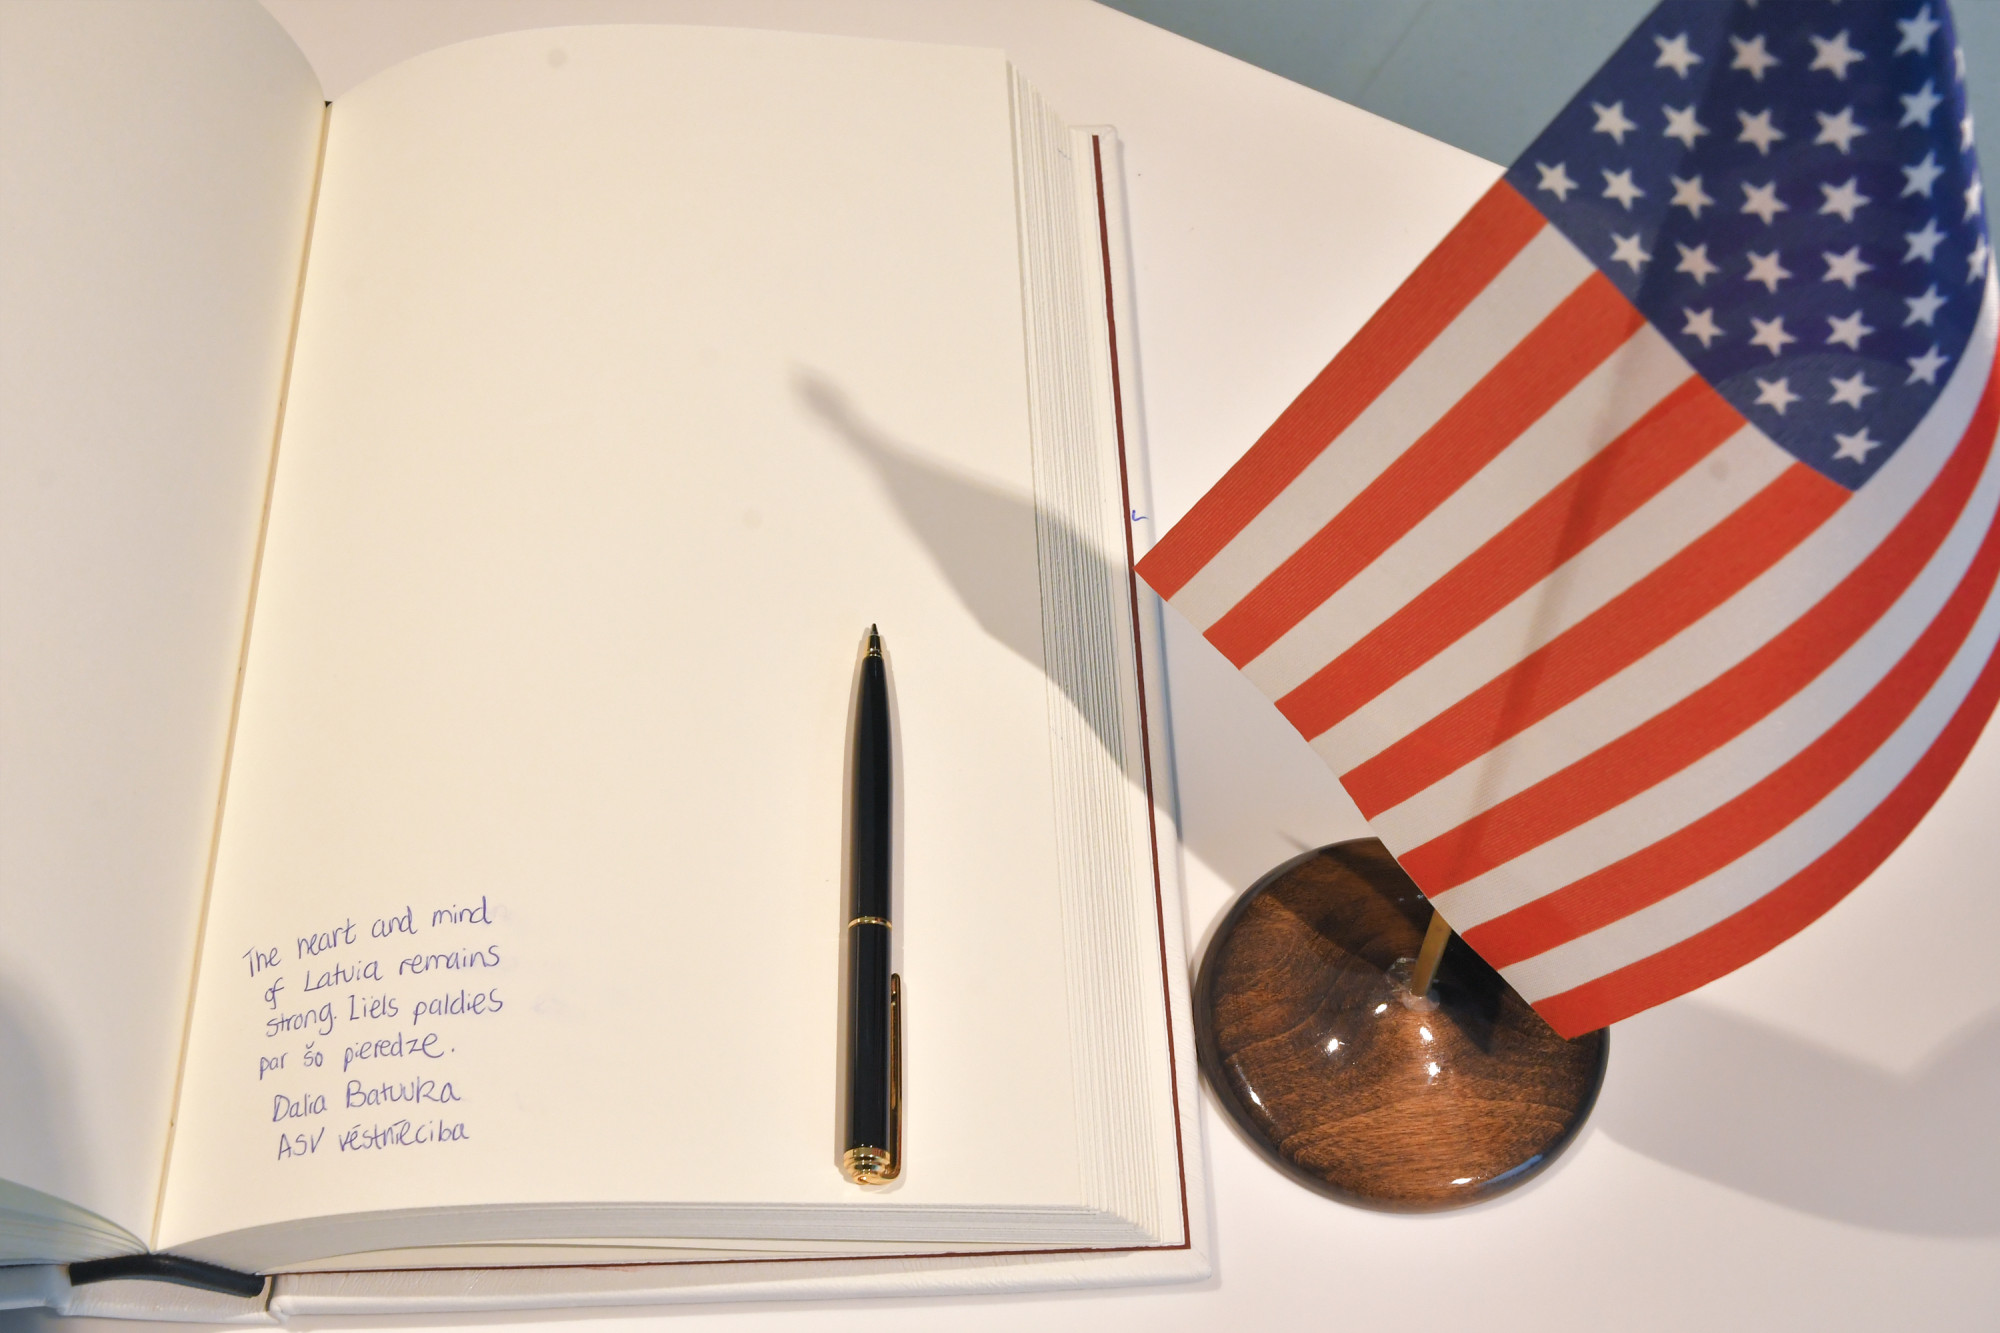 The heart and mind
of Latvia remains
strong. Liels paldies
par šo pieredze.
Dalia
ASV vēstniecība